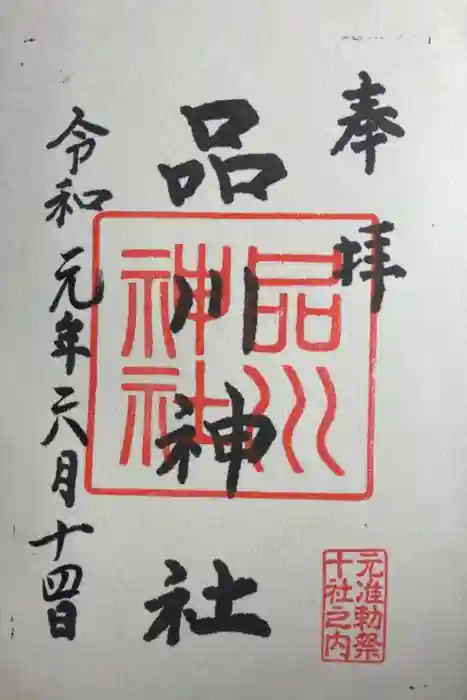 奉拝
品川神社
品川神社
令和元年六月十四日
元准勅祭
十社之内